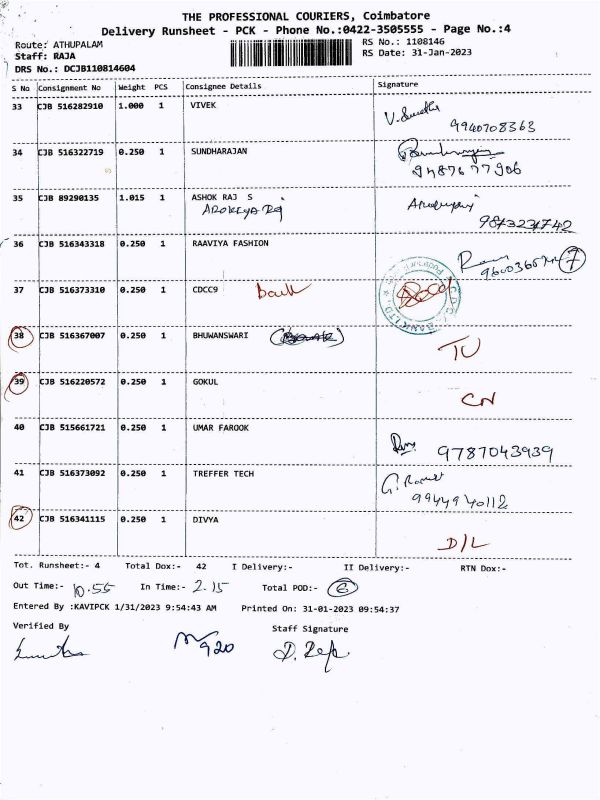 THE PROFESSIONAL COURIERS, Coimbatore
Delivery Runsheet - PCK - Phone No.:0422-3505555 - Page No.:4
Route: ATHUPALAM RS No.: 1108146
Staff: RAJA RS Date: 31-Jan-2023
DRS No.: DCJB110814604
S No Consignment No Weight PCS Consignee Details Signature
33 CJB 516282910 1.000 1 VIVEK
9940708363
34 CJB 516322719 0.250 1 SUNDHARAJAN
9487677906
35 CJB 89290135 1.015 1 ASHOK RAJ S
AROKIYARaj
9873231742
36 CJB 516343318 0.250 1 RAAVIYA FASHION
7
37 CJB 516373310 0.250 1 CDCC9 bank
38 CJB 516367007 0.250 1 BHUWANSWARI
TU
39 CJB 516220572 0.250 1 GOKUL
CN
40 CJB 515661721 0.250 1 UMAR FAROOK
9787043939
41 CJB 516373092 0.250 1 TREFFER TECH
9944940112
42 CJB 516341115 0.250 1 DIVYA
D/L
Tot. Runsheet:- 4 Total Dox:- 42 I Delivery:- II Delivery:- RTN Dox:-
Out Time:- 10.55 In Time:- 2.15 Total POD:- 6
Entered By :KAVIPCK 1/31/2023 9:54:43 AM Printed On: 31-01-2023 09:54:37
Verified By Staff Signature
920